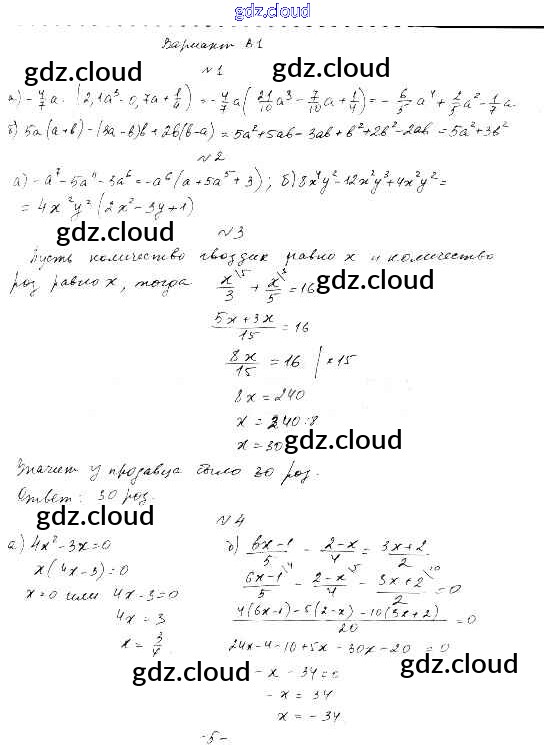 gdz.cloud
Вариант В1
gdz.cloud gdz.cloud
№1
а) -4/7a · (2,1a³ - 0,7a + 1/4) = -4/7a (21/10a³ - 7/10a + 1/4) = -6/5a⁴ + 2/5a² - 1/7a.
б) 5a(a+b) - (3a-b)b + 2b(b-a) = 5a² + 5ab - 3ab + b² + 2b² - 2ab = 5a² + 3b²
№2
gdz.cloud gdz.cloud
а) -a⁷ - 5a¹¹ - 3a⁶ = -a⁶(a + 5a⁵ + 3); б) 8x⁴y² - 12x²y³ + 4x²y² =
= 4x²y²(2x² - 3y + 1)
gdz.cloud
№3
gdz.cloud
Пусть количество гвоздик равно x и количество
роз равно x, тогда x/3 \5 + x/5 \3 = 16
gdz.cloud
(5x + 3x)/15 = 16
8x/15 = 16 | × 15
8x = 240
x = 240 : 8
x = 30
gdz.cloud
Значит у продавца было 30 роз.
Ответ: 30 роз.
gdz.cloud
№4
а) 4x² - 3x = 0
x(4x - 3) = 0
x = 0 или 4x - 3 = 0
4x = 3
x = 3/4
б) (6x-1)/5 - (2-x)/4 = (3x+2)/2
(6x-1)/5 \4 - (2-x)/4 \5 - (3x+2)/2 \10 = 0
(4(6x-1) - 5(2-x) - 10(3x+2))/20 = 0
24x - 4 - 10 + 5x - 30x - 20 = 0
gdz.cloud gdz.cloud
-x - 34 = 0
-x = 34
x = -34
-5-